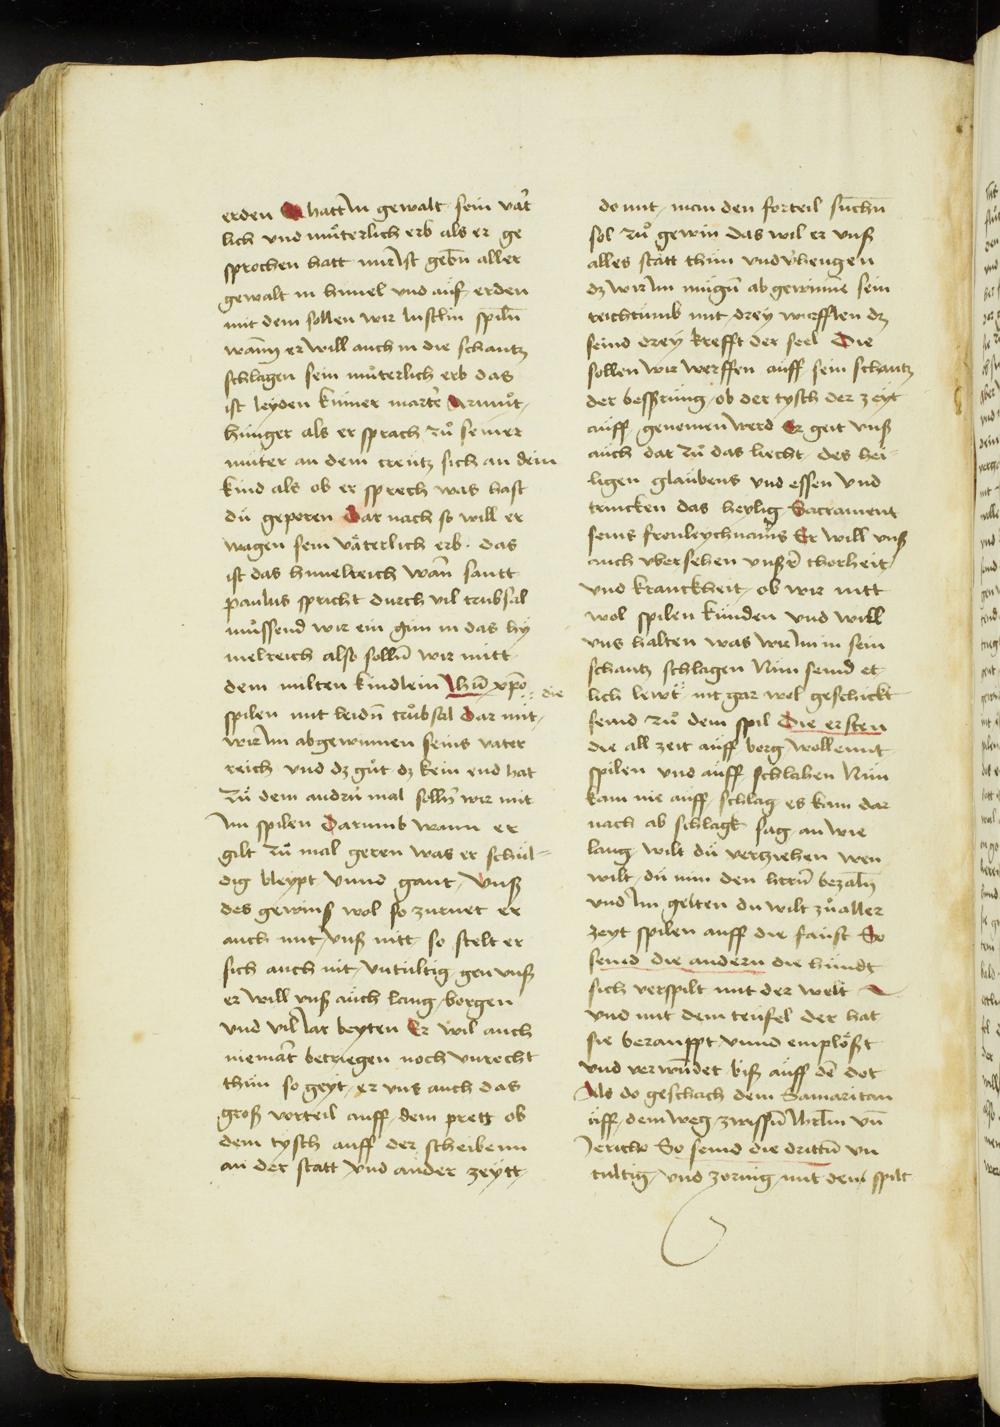 erden Er hatt in gewalt sein vat̄
lich vnd mu̇terlich erb als er ge
sprochen hatt mir ist gebn̄ aller
gewalt in himel vnd auf erden
mit dem sollen wir lustlin spiln̄
wann er will auch in die schantz
schlagen sein mu̇terlich erb das
ist leyden kumer marter Armu̇t
hunger als er sprach zu̇ seiner
muter an dem creutz sich an dein
kind als ob er sprech was hast
du geporen Dar nach so will er
wagen sein väterlich erb. das
ist das himelreich wan̄ santt
paulus spricht durch vil trubsal
mu̇ssend wir ein gan in das hy
melreich also solln̄ wir mitt
dem milten kindlein Ihū xp̄o die
spilen mit leidn̄ tru̇bsal Dar mit
wir im abgewinnen seins vater
reich vnd dz gu̇t dz kein end hat
Zu̇ dem andrn̄ mal solln̄ wir mit
Im spilen Darumb wann er
gilt zu̇ mal geren was er schul=
dig bleypt Vnnd gant Vnß
des gewins wol so zurnet er
auch mit vnß nitt so stelt er
sich auch nit vntultig gen vnß
er will vnß auch lang borgen
vnd vil Iar beyten Er wil auch
niemāt betriegen noch vnrecht
thun so geyt er vns auch das
groß vorteil auff dem prett ob
dem tysch auff der scheibenn
an der statt vnd ander zeytt
do mit man den forteil suchn̄
sol zu̇ gewin das wil er vnß
alles statt thun vnd v̄hengen
dz wir im mugn̄ ab gewinnē sein
reichtumb mit drey wurfflen dz
seind drey krefft der seel Die
sollen wir werffen auff sein schantz
der bessrung ob der tysch der zeyt
auff genemen werd Er geit vnß
auch dar zu̇ das liecht des hei=
ligen glaubens vnd essen vnd
trincken das heylig Sacrament
seins fronleychnams Er will vnß
auch vbersehen vnsrē thorheit
vnd kranckheit ob wir nitt
wol spilen kunden vnd will
vns halten was wir im in sein
schantz schlagen Nun seind et
lich lewt nit gar wol geschickt
seind zu̇ dem spil Die ersten
die all zeit auff borg wollennt
spilen vnd auff schlahen Nun
kam nie auff schlag es kam dar
nach ab schlagk sag an wie
lang wilt du verzyehen wen
wilt du nun den hern̄ bezaln̄
vnd im gelten du wilt zu̇ aller
zeyt spilen auff die faust So
seind die andern die hundt
sich verspilt mit der welt
vnd mit dem teufel der hat
sie beraupt vnnd emplößt
vnd verwundet biß auff dē dot
Als do geschach dem Samaritan
uff dem weg zwissn̄ Ihrlm̄ vn̄
Jericho So seind die drittn̄ vn
tultig vnd zornig mit dem spilt